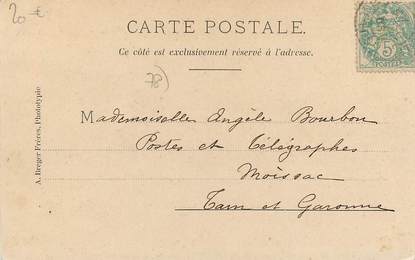 20 €
CARTE POSTALE.
Ce côté est exclusivement réservé à l'adresse.
5
POSTES
78)
Mademoiselle Angèle Bourbon
Postes et Télégraphes
Moissac
Tarn et Garonne
A. Breger Frères, Phototypie